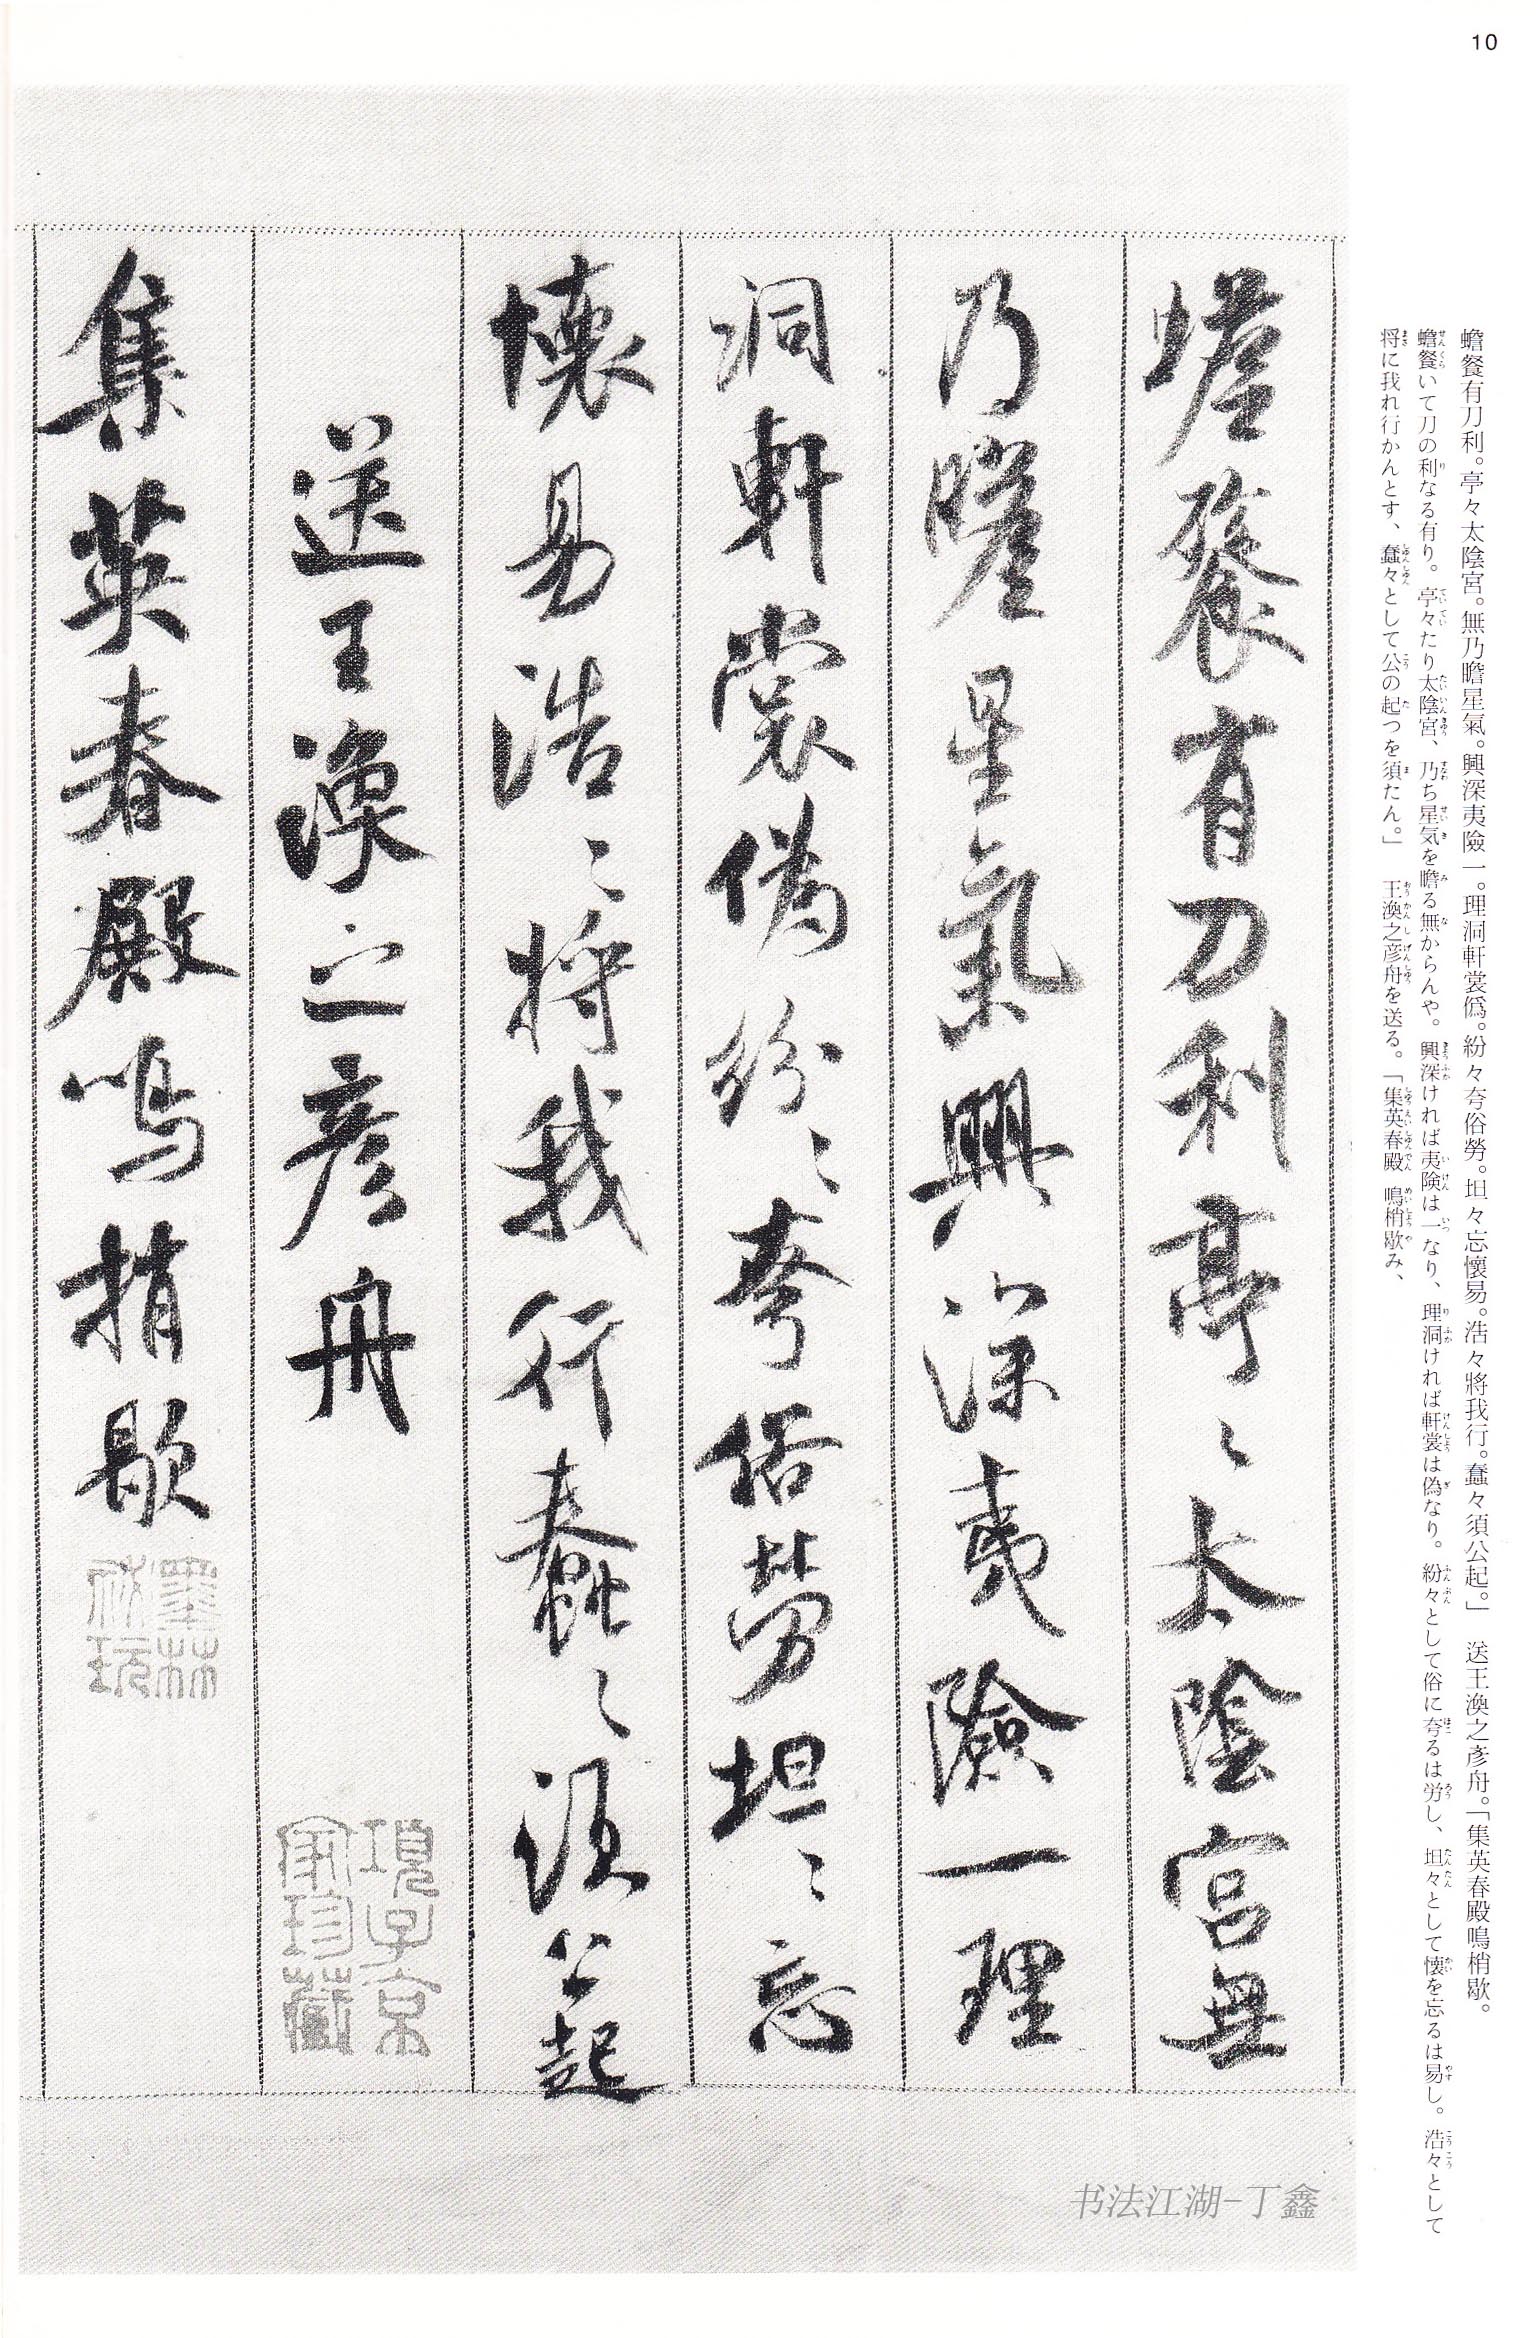 10
蟾餐有刀利。亭々太陰宮。無乃瞻星氣。興深夷險一。理洞軒裳僞。紛々夸俗勞。坦々忘懷易。浩々將我行。蠢々須公起。」　送王渙之彥舟。「集英春殿鳴梢歇。
蟾餐いて刀の利なる有り。亭々たり太陰宮、乃ち星気を瞻る無からんや。興深ければ夷険は一なり、理洞ければ軒裳は偽なり。紛々として俗に夸るは労し、坦々として懐を忘るは易し。浩々として
将に我れ行かんとす、蠢々として公の起つを須たん。」　王渙之彦舟を送る。「集英春殿　鳴梢歇み、
蟾餐有刀利亭〻太陰宮無
乃瞻星氣興深夷險一理
洞軒裳偽紛〻夸俗勞坦〻忘
懷易浩〻将我行蠢〻須公起
送王渙之彥舟
集英春殿鳴捎歇
項子京
家珍藏
墨林
祕玩
书法江湖-丁鑫